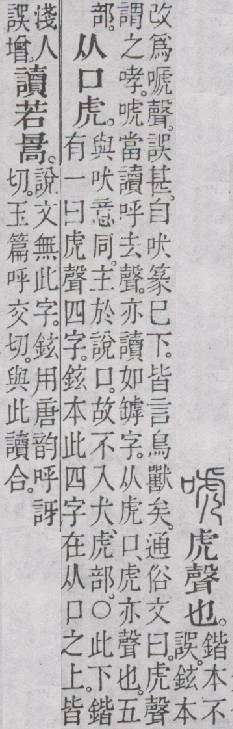 唬虎聲也。鍇本不
誤。鉉本
改爲嗁聲。誤甚。自吠篆巳下。皆言鳥獸矣。通俗文曰。虎聲
謂之哮。唬當讀呼去聲。亦讀如罅字。从虎口。虎亦聲也。五
部。
从口虎。
與吠意同。主於說口。故不入犬虎部。○此下鍇
有一曰虎聲四字。鉉本此四字在从口之上。皆
淺人
誤增。
讀若暠。
說文無此字。鉉用唐韵呼訝
切。玉篇呼交切。與此讀合。